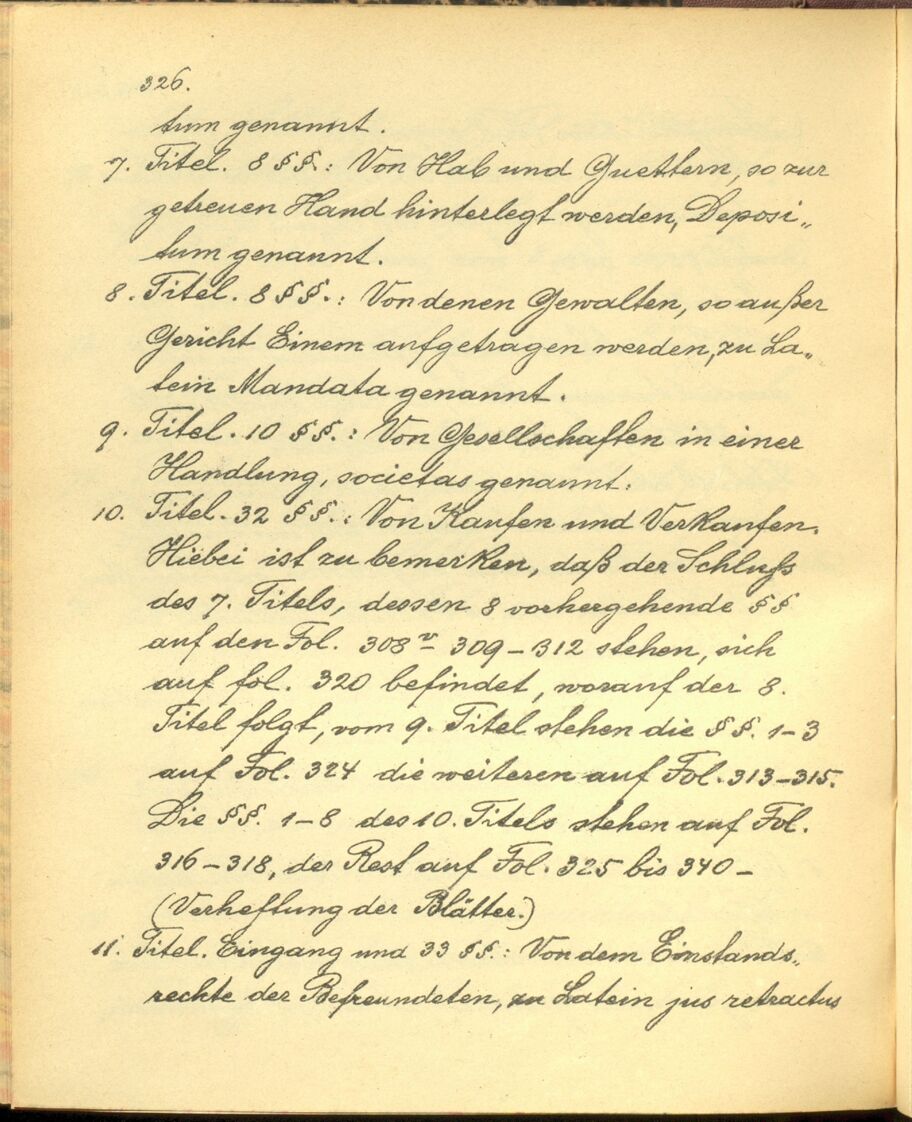 326.
tum genannt.
7. Titel. 8 §§.: Von Hab und Guettern, so zur
getreuen Hand hinterlegt werden, Deposi„
tum genannt.
8. Titel. 8 §§.: Von denen Gewalten, so außer
Gericht Einem aufgetragen werden, zu La„
tein Mandata genannt.
9. Titel. 10 §§.: Von Gesellschaften in einer
Handlung, societas genannt.
10. Titel. 32 §§.: Von Kaufen und Verkaufen.
Hiebei ist zu bemerken, daß der Schluß
des 7. Titels, dessen 8 vorhergehende §§
auf den Fol. 308v – 309–312 stehen, sich
auf fol. 320 befindet, worauf der 8.
Titel folgt, vom 9. Titel stehen die §§. 1–3
auf Fol. 324 die weiteren auf Fol. 313–315.
Die §§. 1–8 des 10. Titels stehen auf Fol.
316–318, der Rest auf Fol. 325 bis 340 –
(Verheftung der Blätter.)
11. Titel. Eingang und 33 §§.: Von dem Einstands„
rechte der Befreundeten, zu Latein jus retractus